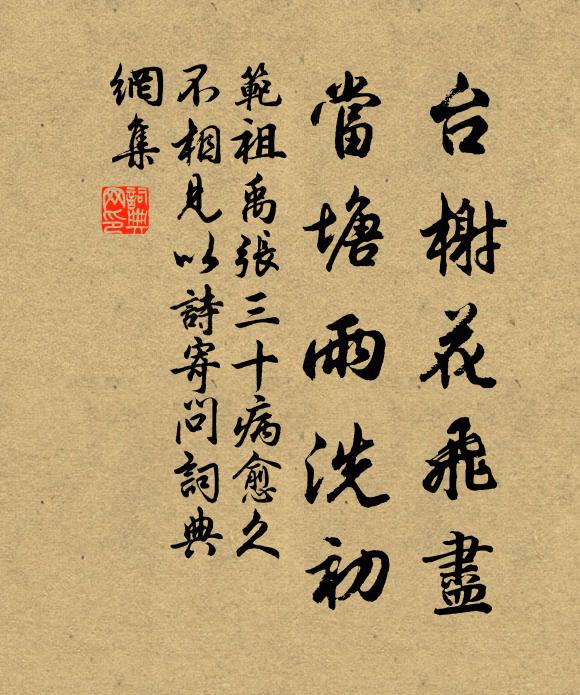 台榭花飛盡
當塘雨洗初
範祖禹張三十病愈久
不相見以詩寄問詞典
網集
詞典
网印